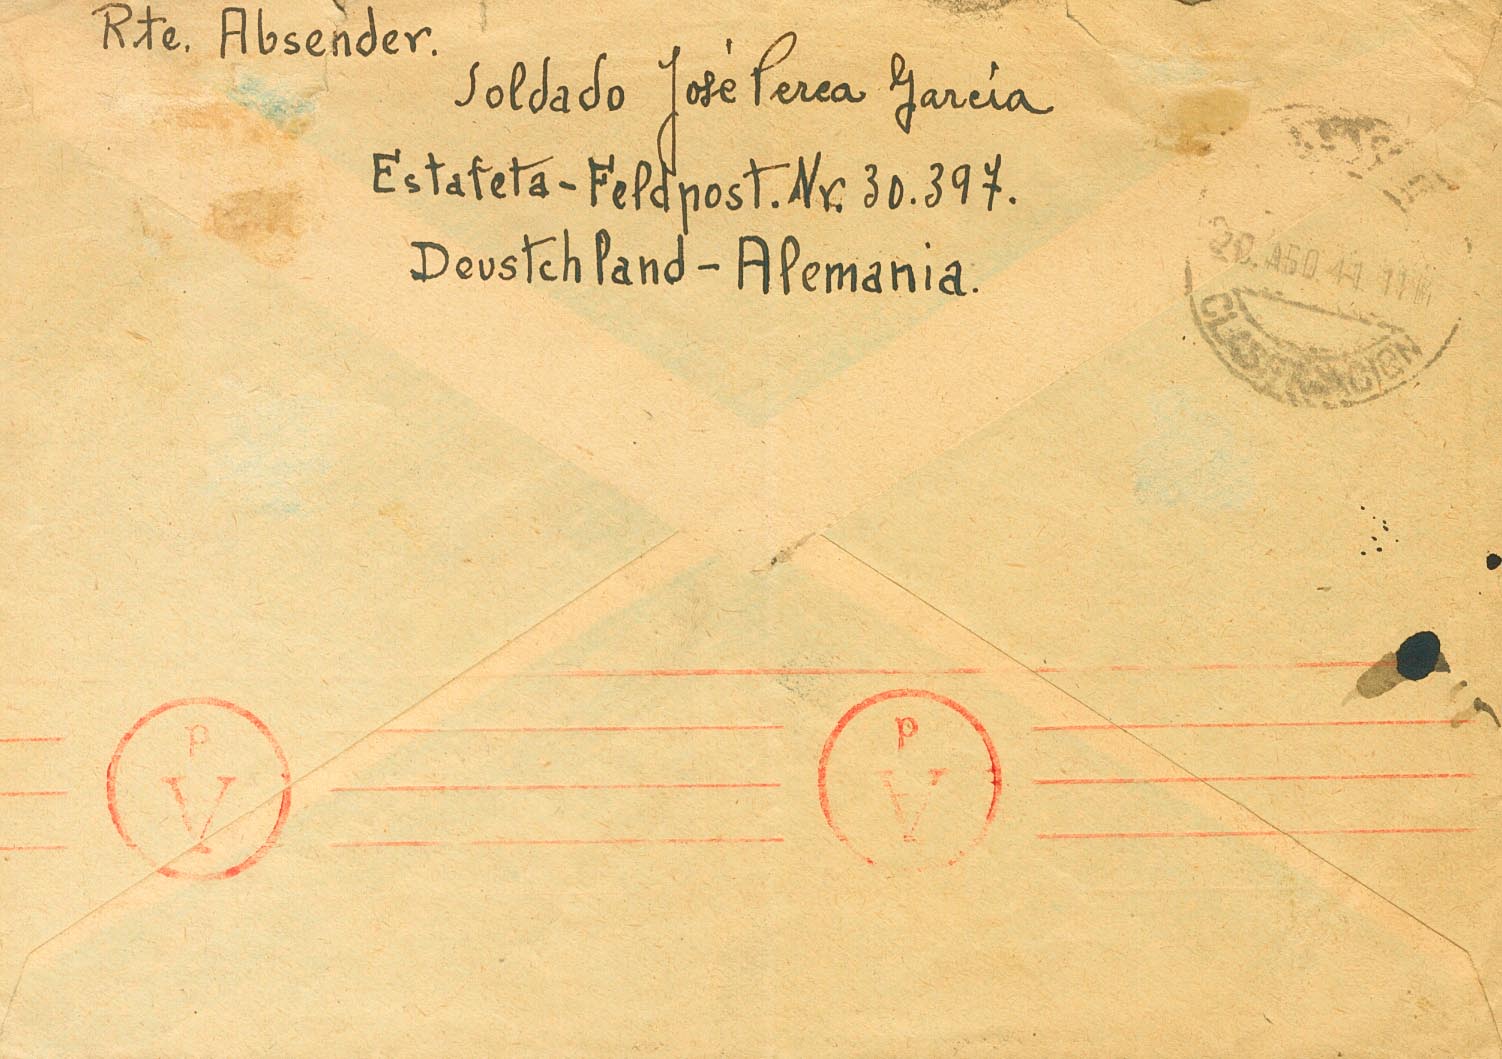 Rte. Absender.
Soldado José Perea García
Estafeta - Feldpost. Nr. 30.397.
Deustchland - Alemania.
20. AGO 41 11
CLASIFICACION
p
A
p
A